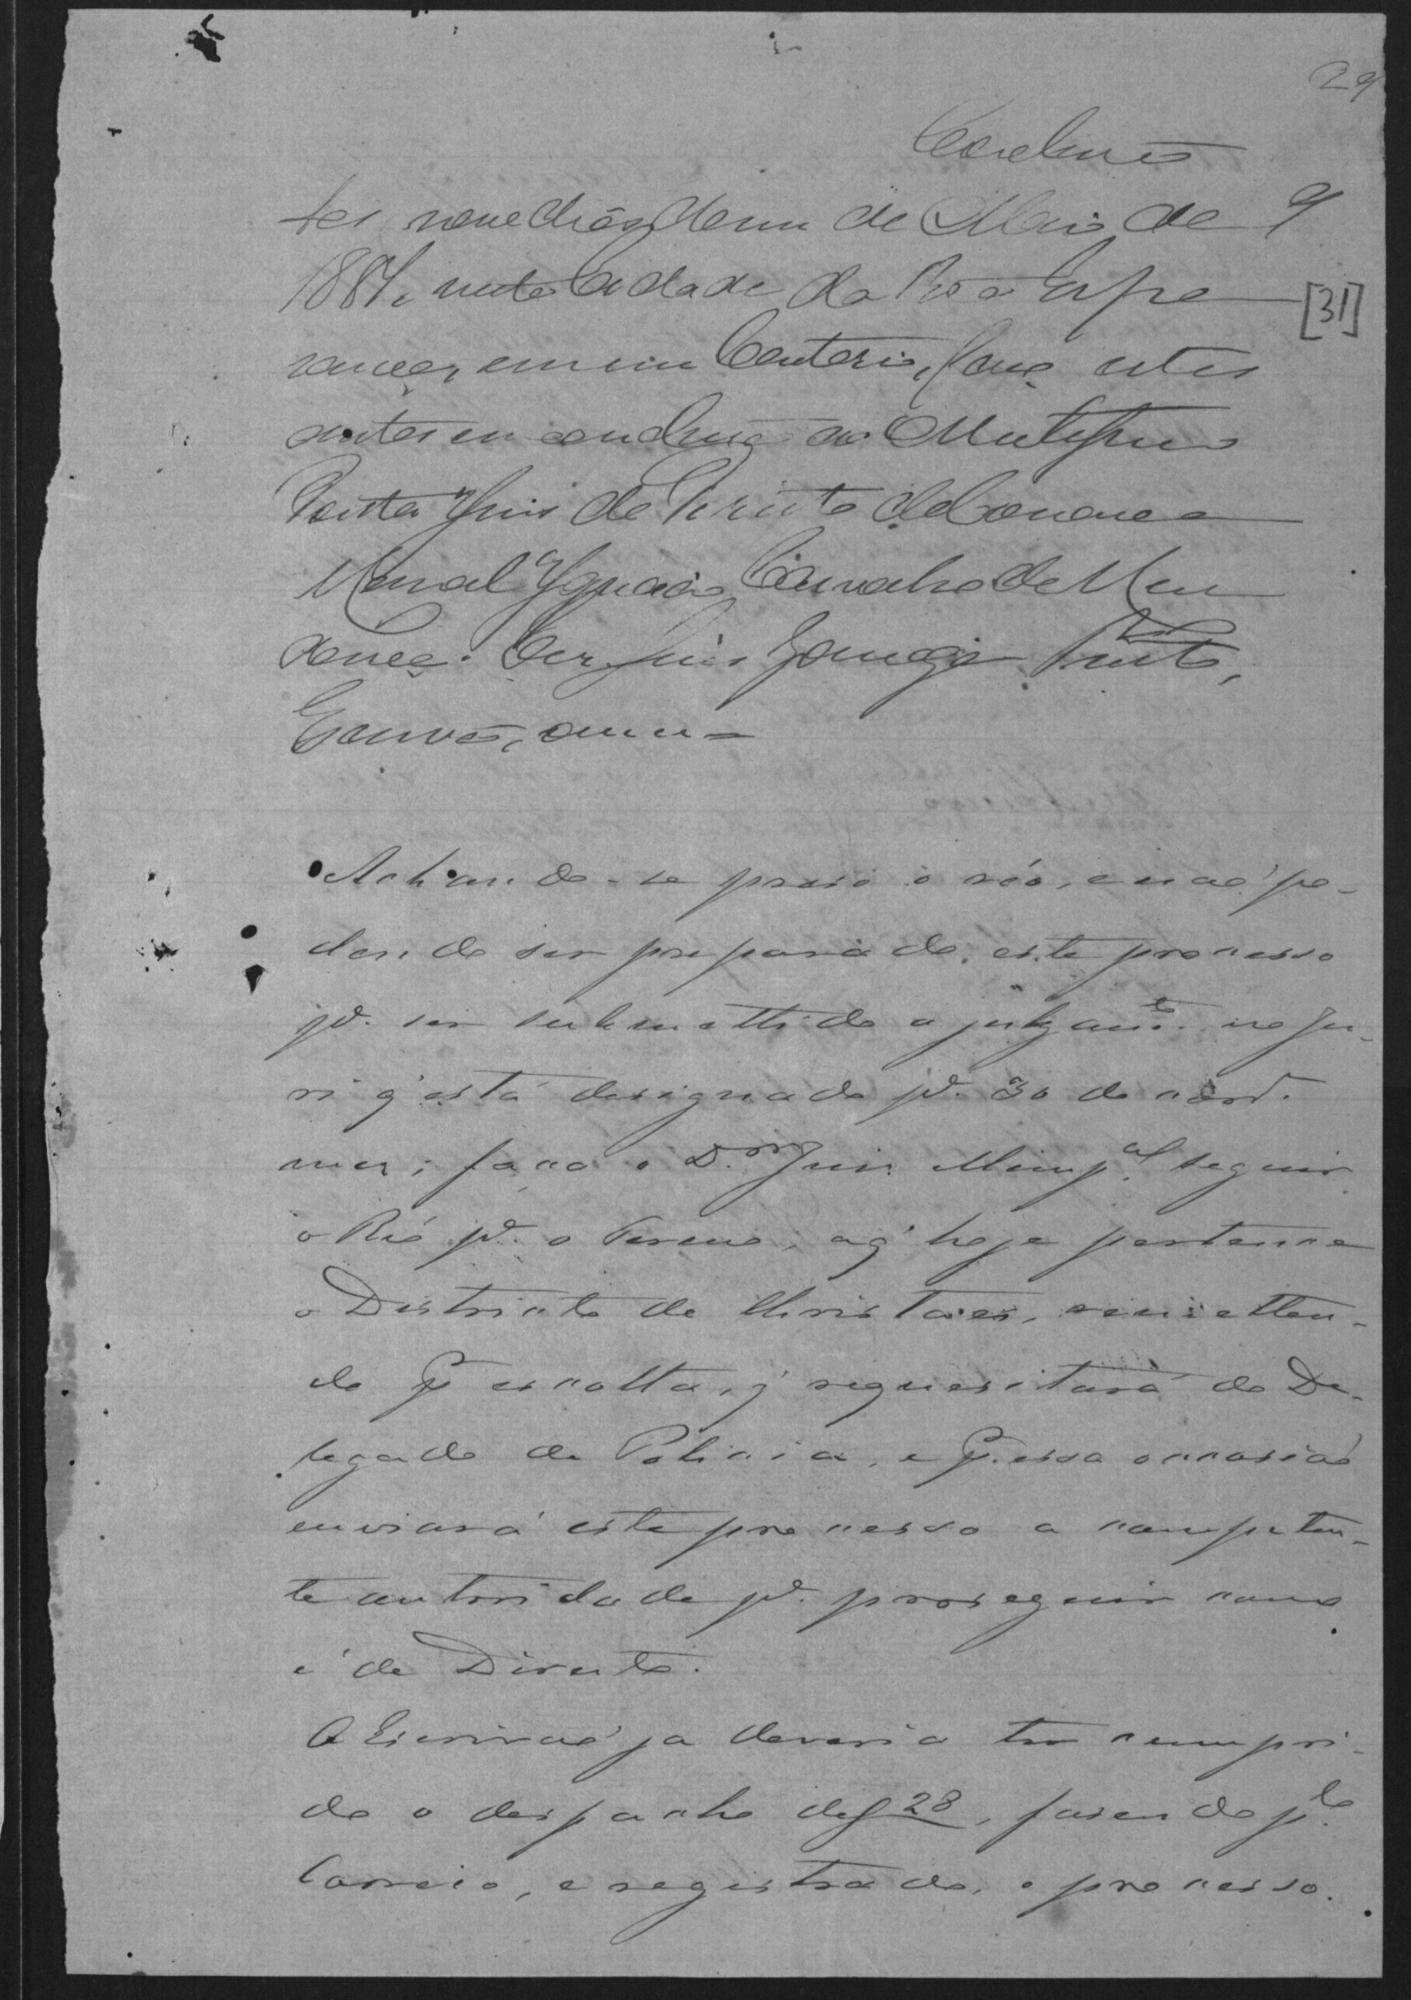 29
Concluzão
Aos nove dias do mez de Maio de 9
1884, nesta Cidade da Boa Espe
[31]
rança, em meu Cartorio, faço estes
autos em concluzão ao Meritissimo
Doutor Juis de Direito da Comarca
Manoel Ignacio Carvalho de Men
donça. Eu Luis Gonzaga
Escrivão,
Achando-se preso o réo, e não po-
dendo ser preparado este processo
pª. ser submettido a julgamtº. no Ju-
ri q' está designado pª. 30 do corrª.
mez; faça o D.or Juis Munpal. seguir
o Réo pª. o termo, a q' hoje pertence
o Districto de Christaes, remetten-
do p escolta, q' requesitará do De-
legado de Policia, e p. essa occasião
enviará este processo a competen-
te autoridade pª. proseguir como
é de Direito.
O Escrivão ja deveria ter cumpri-
do o despacho de f 28, fasendo plo
Correio, e registrado, o processo.